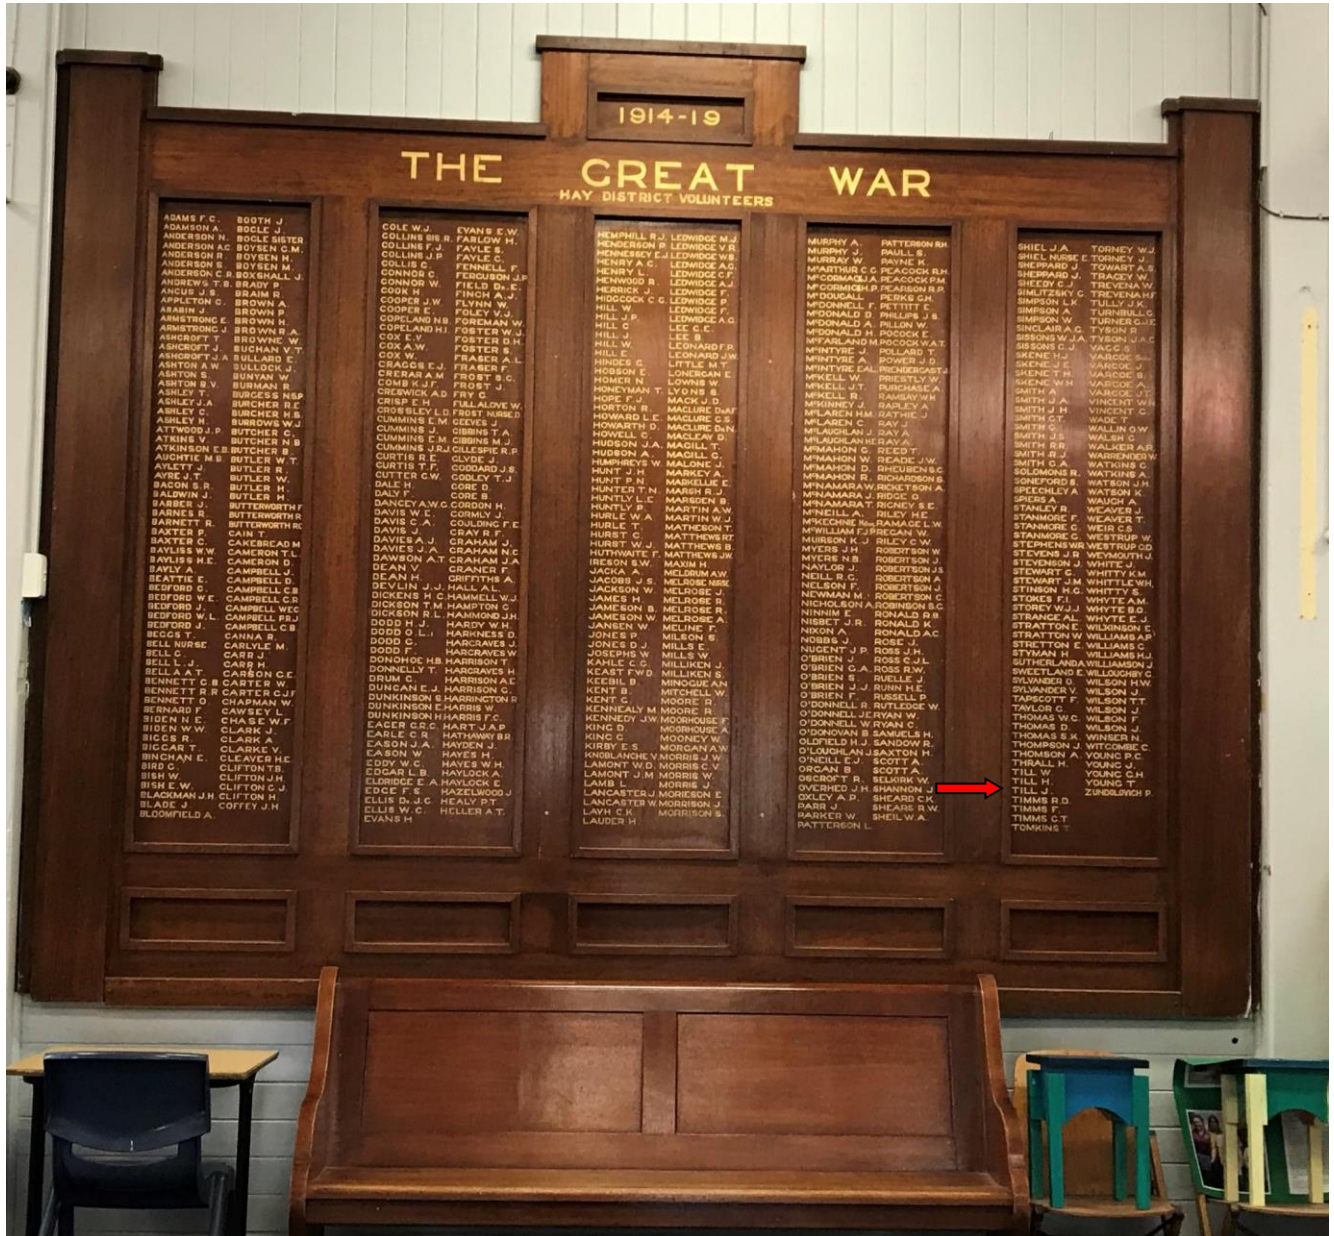 1914-19
THE GREAT WAR
HAY DISTRICT VOLUNTEERS
ADAMS F.C.
ADAMSON A.
ANDERSON N.
ANDERSON A.C.
ANDERSON R.
ANDERSON S.
ANDERSON C.R.
ANDREWS T.B.
ANGUS J.S.
APPLETON C.
ARABIN J.
ARMSTRONG E.
ARMSTRONG J.
ASHCROFT T.
ASHCROFT J.
ASHCROFT J.A.
ASHTON A.W.
ASHTON S.
ASHTON R.V.
ASHLEY T.
ASHLEY J.A.
ASHLEY C.
ASHLEY H.
ATTWOOD J.P.
ATKINS V.
ATKINSON E.B.
AUGHTIE M.S.
AYLETT J.
AYRE J.T.
BACON S.R.
BALDWIN J.
BARBER J.
BARNES R.
BARNETT R.
BAXTER P.
BAXTER C.
BAYLISS W.W.
BAYLISS H.E.
BAYLY A.
BEATTIE E.
BEDFORD C.
BEDFORD W.E.
BEDFORD W.L.
BEDFORD J.
BEGGS T.
BELL NURSE
BELL C.
BELL L.J.
BELL A.A.T.
BENNETT G.B.
BENNETT R.R.
BENNETT O
BERNARD C.
BIDEN N.E.
BIDEN W.W.
BIGGS R.
BIGGAR T.
BINGHAN E.
BIRD C.
BISH W.
BISH E.W.
BLACKMAN J.H.
BLADE J.
BLOOMFIELD A.
BOOTH J.
BOGLE J.
BOGLE SISTER
BOYSEN C.M.
BOYSEN H.
BOYSEN M.
BOXSHALL J.
BRADY P.
BRAIM R.
BROWN A.
BROWN P.
BROWN H.
BROWN R.A.
BROWNE W.
BUCHAN V.T.
BULLARD E.
BULLOCK J.
BUNYAN W.
BURMAN R.
BURGESS N.S.P.
BURCHER R.E.
BURCHER H.B.
BURROWS W.J.
BUTCHER C.
BUTCHER N.B.
BUTCHER B.
BUTLER W.T.
BUTLER R.
BUTLER W.
BUTLER H.
BUTLER H.
BUTTERWORTH F.
BUTTERWORTH R.
BUTTERWORTH R.C.
CAIN T.
CAKEBREAD M.
CAMERON T.L.
CAMERON D.
CAMPBELL J.
CAMPBELL D.
CAMPBELL C.B.
CAMPBELL C.R.
CAMPBELL W.E.C.
CAMPBELL P.R.J.
CAMPBELL C.B.
CANNA R.
CARLYLE M.
CARR J.
CARR H.
CARSON G.E.
CARTER W.
CARTER C.J.F.
CHAPMAN W.
CAWSEY L.
CHASE W.F.
CLARK J.
CLARK A.
CLARKE V.
CLEAVER H.E.
CLIFTON T.B.
CLIFTON J.H.
CLIFTON C.J.
CLIFTON H.
COFFEY J.H.
COLE W.J.
COLLINS SIS. R.
COLLINS F.J.
COLLINS J.P.
COLLIS C.
CONNOR C.
CONNOR W.
COOK H.
COOPER J.W.
COOPER E.
COPELAND N.B.
COPELAND H.I.
COX E.V.
COX A.W.
COX W.
CRAGGS E.J.
CRERAR A.M.
COMB K.J.F.
CRESWICK A.D.
CRISP E.H.
CROSSLEY L.D.
CUMMINS E.M.
CUMMINS J.
CUMMINS E.M.
CUMMINS J.R.J.
CURTIS R.E.
CURTIS T.F.
CUTTER C.W.
DALE H.
DALY F.
DANCEY A.W.G.
DAVIS W.E.
DAVIS C.A.
DAVIS J.
DAVIES A.J.
DAVIES J.A.
DAWSON A.T.
DEAN V.
DEAN H.
DEVLIN J.J.
DICKENS H.C.
DICKSON T.M.
DICKSON R.L.
DODD H.J.
DODD O.L.I.
DODD C.
DODD F.
DONOHOE H.B.
DONNELLY T.
DRUM C.
DUNCAN E.J.
DUNKINSON S.
DUNKINSON E.
DUNKINSON H.
EAGER G.R.C.
EARLE C.R.
EASON J.A.
EASON W.
EDDY W.C.
EDGAR L.B.
ELDRIDGE E.A.
EDGE F.S.
ELLIS D. J.G.
ELLIS W.C.
EVANS H.
EVANS E.W.
FARLOW H.
FAYLE S.
FAYLE C.
FENNELL F.
FERGUSON J.P.
FIELD D. E.
FINCH A.J.
FLYNN W.
FOLEY V.J.
FOREMAN W.
FOSTER W.J.
FOSTER D.H.
FOSTER S.
FRASER A.L.
FRASER F.
FROST S.G.
FROST J.
FRY C.
FULLALOVE W.
FROST NURSE D.
GEEVES J.
GIBBINS T.A.
GIBBINS M.J.
GILLESPIE R.P.
GLYDE J.
GODDARD J.S.
GODLEY T.J.
GORE D.
GORE B.
GORDON H.
GORMLY J.
GOULDING F.E.
GRAY R.F.
GRAHAM J.
GRAHAM N.C.
GRAHAM J.A.
GRANER F.
GRIFFITHS A.
HALL A.L.
HAMMELL W.J.
HAMPTON G
HAMMOND J.H.
HARDY W.H.
HARKNESS D.
HARGRAVES J.
HARGRAVES W.
HARRISON T.
HARGRAVES H.
HARRISON A.E.
HARRISON G.
HARRINGTON R.
HARRIS W.
HARRIS F.C.
HART J.A.P.
HATHAWAY B.R.
HAYDEN J.
HAYES H.
HAYES W.H.
HAYLOCK A.
HAYLOCK E.
HAZELWOOD J.
HEALY P.T.
HELLER A.T.
HEMPHILL R.J.
HENDERSON P.
HENNESSEY E.J.
HENRY A.C.
HENRY L.
HENWOOD R.
HERRICK J.
HIDGCOCK C.G.
HILL W.
HILL J.P.
HILL C
HILL J.
HILL W.
HILL E.
HINDES C.
HOBSON E.
HOMER N.
HONEYMAN T.
HOPE F.J.
HORTON R.
HOWARD L.E.
HOWARTH D.
HOWELL C.
HUDSON J.A.
HUDSON A.
HUMPHREYS W.
HUNT J.H.
HUNT P.N.
HUNTER T.N.
HUNTLY L.E.
HUNTLY P.
HURLE W.A.
HURLE T.
HURST C.
HURST W.J.
HUTHWAITE F.
IRESON S.W.
JACKA A.
JACOBS J.S.
JACKSON W.
JAMES H.
JAMESON B.
JAMESON W.
JANSEN W.
JONES P.
JONES D.J.
JOSEPHS W.
KAHLE C.G.
KEAST F.W.D.
KEEBIL B.
KENT B.
KENT C.
KENNEALY M.
KENNEDY J.W.
KING D.
KING C.
KIRBY E.S.
KNOBLANCHE V.
LAMONT W.D.
LAMONT J.M.
LAMB L.
LANCASTER J.
LANCASTER W.
LAYH C.K.
LAUDER H.
LEDWIDGE M.J.
LEDWIDGE V.R.
LEDWIDGE W.B.
LEDWIDGE A.C.
LEDWIDGE C.F.
LEDWIDGE A.J.
LEDWIDGE F.
LEDWIDGE P.
LEDWIDGE F.
LEDWIDGE A.G.
LEE C.E.
LEE B.
LEONARD F.P.
LEONARD J.W.
LITTLE M.T.
LONERGAN E.
LOWNS W.
LYONS B.
MACK J.D.
MACLURE D. A.F.
MACLURE C.S.
MACLURE D. N.
MACLEAY D.
MAGILL T.
MAGILL C.
MALONE J.
MARKEY A.
MARKELLIE E.
MARSH R.J.
MARSDEN B.
MARTIN A.W.
MARTIN W.J.
MATHESON T.
MATTHEWS R.T.
MATTHEWS B.
MATTHEWS J.W.
MAXIM H.
MELDRUM A.W.
MELROSE NURSE
MELROSE J.
MELROSE R.
MELROSE R.
MELROSE A.
MELINE F.
MILSON S.
MILLS E.
MILLS W.
MILLIKEN J.
MILLIKEN S.
MINOGUE A.N.
MITCHELL W.
MOORE R.
MOORE R.
MOORHOUSE F.
MOORHOUSE A.
MOONEY W.
MORGAN A.W.
MORRIS J.W.
MORRIS C.V.
MORRIS W.
MORRIS J.
MORIESON E.
MORRISON J.
MORRISON S.
MURPHY A.
MURPHY J.
MURRAY W.
McARTHUR C.G.
McCORMACK J.A.
McCORMICK H.P.
McDOUGALL
McDONNELL F.
McDONALD D.
McDONALD A.
McDONALD H.
McFARLAND M.
McINTYRE J.
McINTYRE A.
McINTYRE E.A.L.
McKELL W.
McKELL J.T.
McKELL R.
McKINNEY J.
McLAREN H.M.
McLAREN C.
McLAUGHLAN J.
McLAUGHLAN H.E.
McMAHON G.
McMAHON W.
McMAHON D.
McMAHON R.
McNAMARA W.
McNAMARA J.
McNAMARA T.
McNEILL A.
McKECHNIE
McWILLIAM F.J.
MUIRSON K.J.
MYERS J.H.
MYERS N.B.
NAYLOR J.
NEILL R.G.
NELSON F.
NEWMAN M.
NICHOLSON A.
NINNIM E.
NISBET J.R.
NIXON A.
NOBBS J.
NUGENT J.P.
O'BRIEN J.
O'BRIEN G.A.
O'BRIEN S.
O'BRIEN J.J.
O'BRIEN F.
O'DONNELL R.
O'DONNELL J.E.
O'DONNELL W.
O'DONOVAN B.
OLDFIELD H.J.
O'LOUGHLAN J.
O'NEILL E.J.
ORGAN B.
OSCROFT R.
OVERHED J.H.
OXLEY A.P.
PARR J.
PARKER W.
PATTERSON L.
PATTERSON R.H.
PAULL S.
PAYNE K.
PEACOCK R.H.
PEACOCK P.M.
PEARSON R.P.
PERKS G.H.
PETTITT E.
PHILLIPS J.S.
PILLON W.
POCOCK E.
POCOCK W.A.T.
POLLARD T.
POWER J.D.
PRENDERGAST J.
PRIESTLY W.
PURCHASE A.
RAMSAY W.H.
RAPLEY A.
RATHIE J.
RAY J.
RAY A.
RAY A.
REED T.
READE J.W.
RHEUBEN S.C.
RICHARDSON S.
RICKETSON A.
RIDGE O.
RIGNEY S.E.
RILEY H.E.
RAMAGE L.W.
REGAN W.
RILEY C.W.
ROBERTSON W.
ROBERTSON J.
ROBERTSON J.S.
ROBERTSON A.
ROBERTSON J.
ROBERTSON C.
ROBINSON S.C.
RONALD R.B.
RONALD K.
RONALD A.C.
ROSE J.
ROSS J.H.
ROSS C.J.L.
ROSS R.W.
RUELLE J.
RUNN H.E.
RUSSELL P.
RUTLEDGE W.
RYAN W.
RYAN C.
SAMUELS H.
SANDOW R.
SAXTON H.
SCOTT A.
SCOTT A.
SELKIRK W.
SHANNON J.
SHEARD C.K.
SHEARS R.W.
SHEIL W.A.
SHIEL J.A.
SHIEL NURSE E.
SHEPPARD J.
SHEPPARD J.
SHEEDY C.J.
SIMLITZSKY G.
SIMPSON L.K.
SIMPSON A.
SIMPSON W.
SINCLAIR A.G.
SISSONS W.J.A.
SISSONS C.J.
SKENE H.J.
SKENE J.E.
SKENE T.H.
SKENE W.H.
SMITH A.
SMITH J.A.
SMITH J.H.
SMITH G.T.
SMITH C.
SMITH J.S.
SMITH R.R.
SMITH R.J.
SMITH G.A.
SOLOMONS R.
SONEFORD S.
SPEECHLEY A.
SPIERS A.
STANLEY R.
STANMORE F.
STANMORE C.
STANMORE G.
STEPHENS W.R.
STEVENS J.R.
STEVENSON J.
STEWART C.
STEWART J.M.
STINSON H.G.
STOKES F.I.
STOREY W.J.J.
STRANGE A.L.
STRATTON E.
STRATTON W.
STRETTON E.
STYMAN H.
SUTHERLAND A.
SWEETLAND E.
SYLVANDER D.
SYLVANDER V.
TAPSCOTT F.
TAYLOR C.
THOMAS W.C.
THOMAS D.
THOMAS S.K.
THOMPSON J.
THOMSON A.
THRALL H.
TILL W.
TILL H.
TILL J.
TIMMS R.D.
TIMMS F.
TIMMS C.T.
TOMKINS T.
TORNEY W.J.
TORNEY J.
TOWART A.S.
TRACEY W.
TREVENA W.
TREVENA H.F.
TULLY J.K.
TURNBULL G.
TURNER G.J.E.
TYSON R.
TYSON J.A.C.
VAGG S.
VARCOE
VARCOE J.
VARCOE B.
VARCOE A.
VARCOE J.T.
VINCENT W.H.
VINCENT G.
WADE T.
WALLIN O.W.
WALSH G.
WALKER A.S.P.
WARRENDER W.
WATKINS C.
WATKINS A.
WATSON J.H.
WATSON K.
WAUGH A.
WEAVER J.
WEAVER T.
WEIR C.S.
WESTRUP W.
WESTRUP O.D.
WEYMOUTH J.
WHITE J.
WHITTY K.M.
WHITTLE W.H.
WHITTY S.
WHYTE A.M.
WHYTE B.G.
WHYTE E.J.
WILKINSON E.
WILLIAMS A.P.
WILLIAMS C.
WILLIAMS H.
WILLIAMSON J.
WILLOUGHBY C.
WILSON H.W.
WILSON J.
WILSON T.T.
WILSON J.
WILSON F.
WINBERI N.
WITCOMBE C.
YOUNG J.
YOUNG P.C.
YOUNG C.H.
YOUNG T.
ZUNDOLOVICH P.